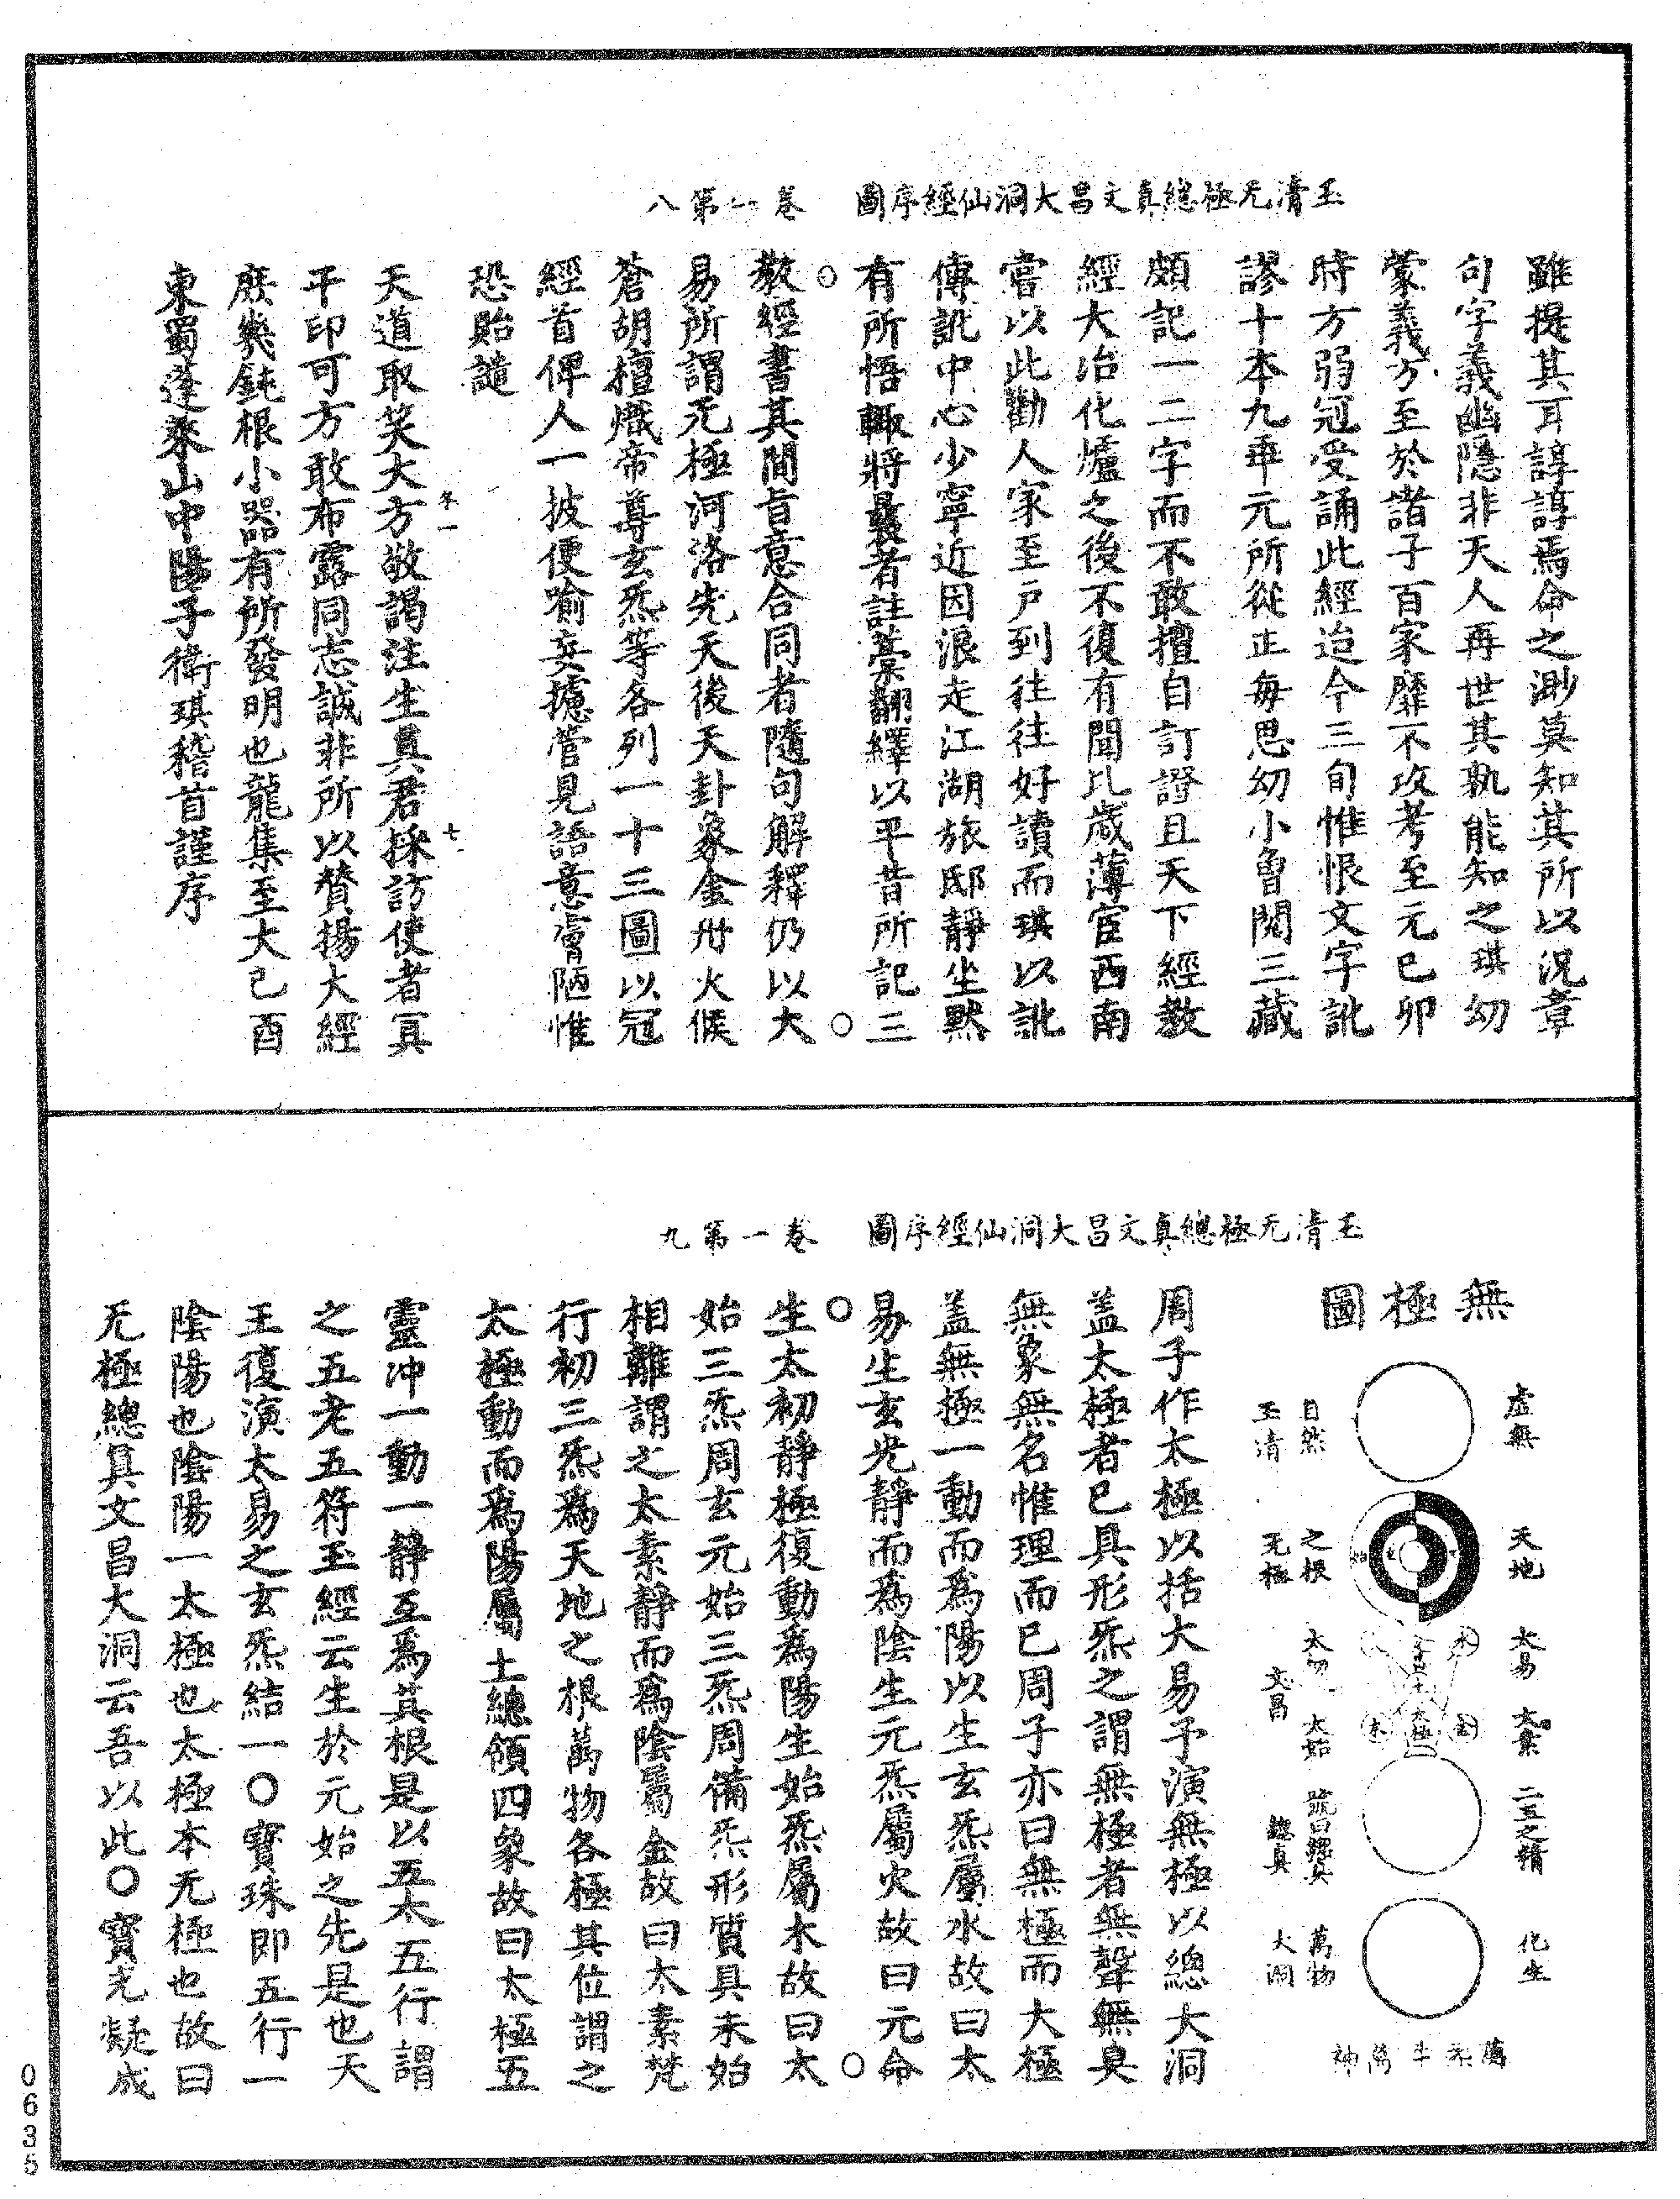 玉清无極總真文昌大洞仙經序圖　卷一第八
雖提其耳諄諄焉命之渺莫知其所以況章
句字義幽隱非天人再世其孰能知之琪幼
蒙義方至於諸子百家靡不攻考至元己卯
時方弱冠受誦此經迨今三旬惟恨文字訛
謬十本九乖元所從正每思幼小曾閱三藏
頗記一二字而不敢擅自訂證且天下經教
經大冶化爐之後不復有聞比歲薄宦西南
嘗以此勸人家至戶到往往好讀而琪以訛
傳訛中心少寧近因浪走江湖旅邸靜坐默
有所悟輒將曩者註藁翻繹以平昔所記三
教經書其間旨意合同者隨句解釋仍以大
易所謂无極河洛先天後天卦象金丹火候
蒼胡檀熾帝尊玄炁等各列一十三圖以冠
經首俾人一披便喻妄攄管見語意膚陋惟
恐貽譴
天道取笑大方敬謁注生真君採訪使者冥
朱一　七
干印可方敢布露同志誠非所以贊揚大經
庶與鈍根小器有所發明也龍集至大己酉
東蜀蓬萊山中陽子衛琪稽首謹序
玉清无極總真文昌大洞仙經序圖　卷一第九
無極圖
虛無　自然　玉清
天地　之根　无極
太易　太素　太初　太始　文昌
水　火　木　金　土　太極
二五之精　號曰總真
化生　萬物　大洞
萬炁生萬神
周子作太極以括大易予演無極以總大洞
蓋太極者已具形炁之謂無極者無聲無臭
無象無名惟理而已周子亦曰無極而大極
蓋無極一動而為陽以生玄炁屬水故曰太
易生玄光靜而為陰生元炁屬火故曰元命
生太初靜極復動為陽生始炁屬木故曰太
始三炁周玄元始三炁周備炁形質具未始
相離謂之太素靜而為陰屬金故曰太素梵
行初三炁為天地之根萬物各極其位謂之
太極動而為陽屬土總領四象故曰太極五
靈冲一動一靜互為其根是以五太五行謂
之五老五符玉經云生於元始之先是也天
王復演太易之玄炁結一〇寶珠即五行一
陰陽也陰陽一太極也太極本无極也故曰
无極總真文昌大洞云吾以此〇寶光凝成
0635